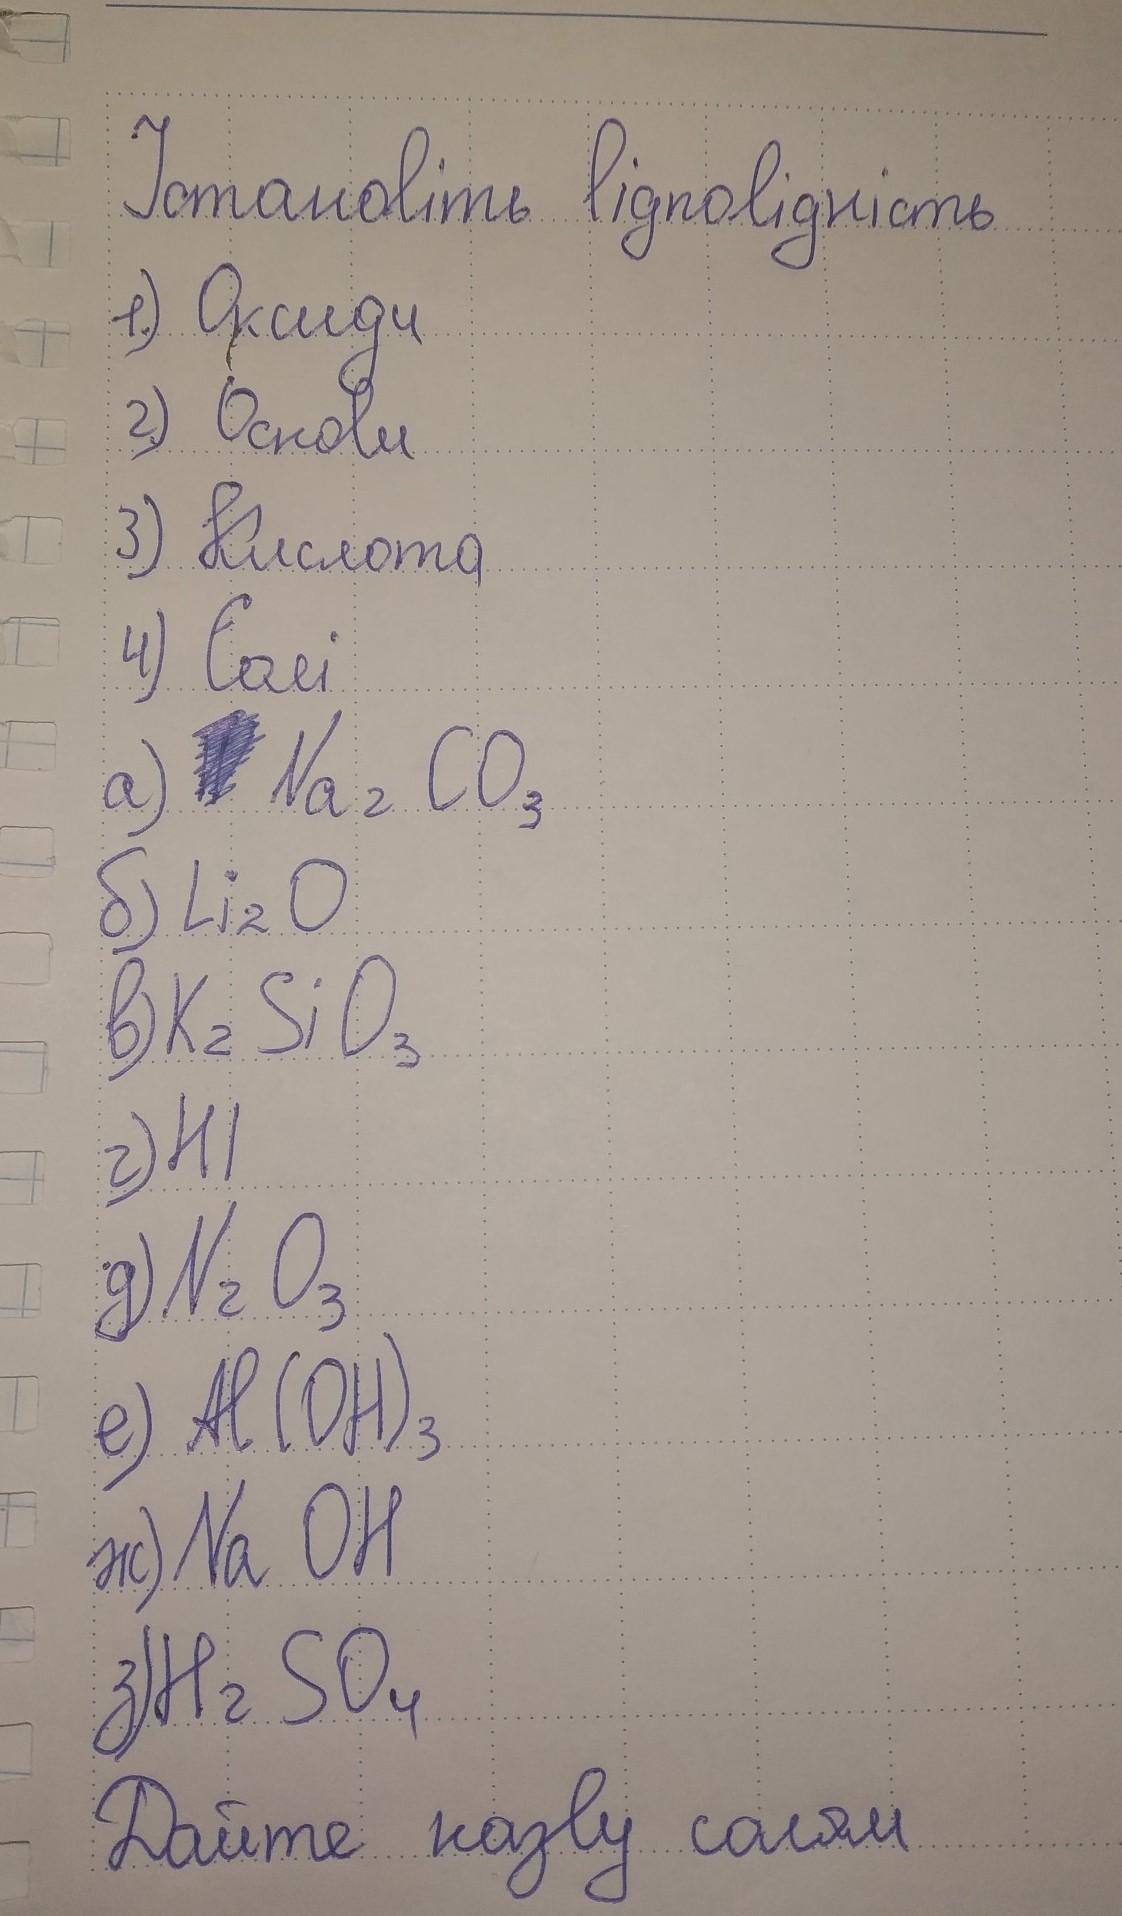 Установіть відповідність
1) Оксиди
2) Основи
3) Кислота
4) Солі
а) Na₂ CO₃
б) Li₂O
в) K₂ SiO₃
г) HI
д) N₂ O₃
е) Al(OH)₃
ж) Na OH
з) H₂ SO₄
Дайте назву солям